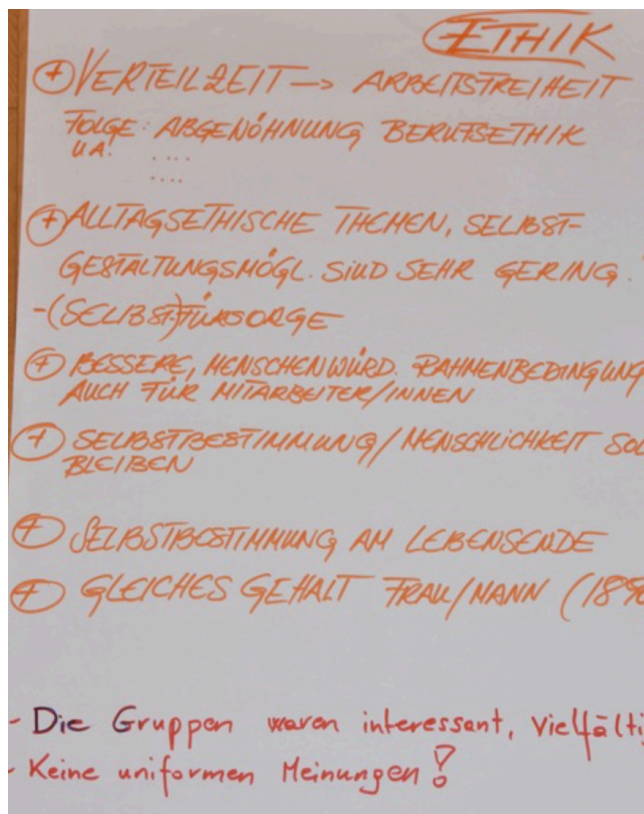 ETHIK
+ VERTEILZEIT -> ARBEITSFREIHEIT
FOLGE: ABGEWÖHNUNG BERUFSETHIK
U.A. ....
....
+ ALLTAGSETHISCHE THEMEN, SELBST-
GESTALTUNGSMÖGL. SIND SEHR GERING.
-(SELBST-)FÜRSORGE
+ BESSERE, MENSCHENWÜRD. RAHMENBEDINGUNG
AUCH FÜR MITARBEITER/INNEN
+ SELBSTBESTIMMUNG/MENSCHLICHKEIT SOL
BLEIBEN
+ SELBSTBESTIMMUNG AM LEBENSENDE
+ GLEICHES GEHALT FRAU/MANN (18%
- Die Gruppen waren interessant, vielfälti
- Keine uniformen Meinungen!